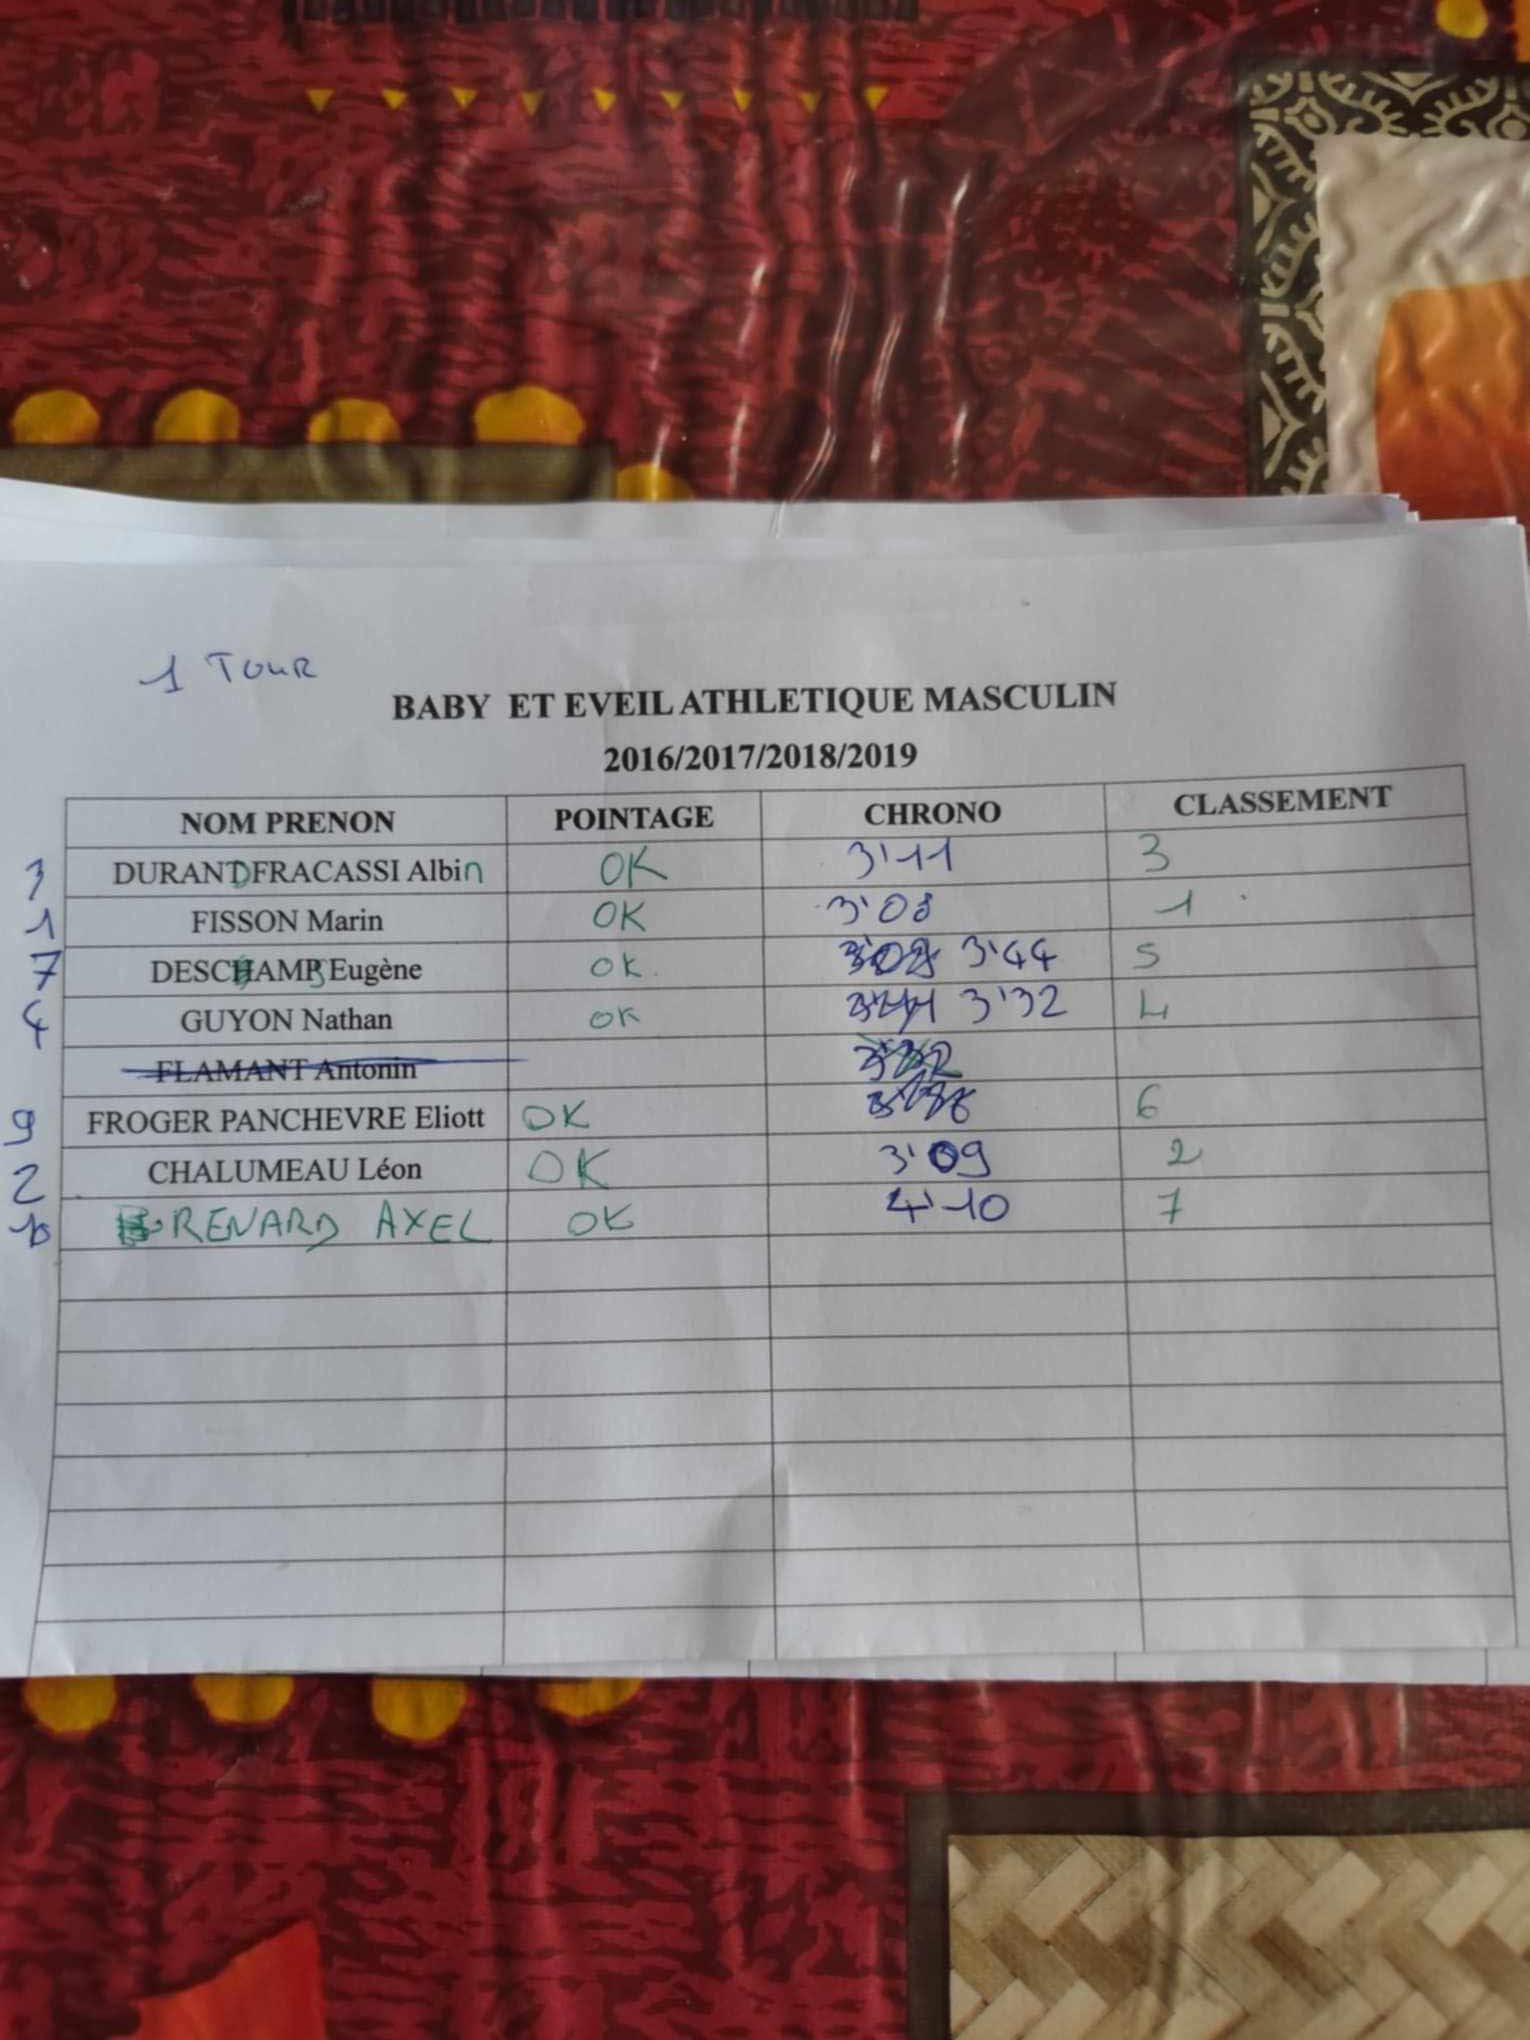 1 TOUR
BABY ET EVEIL ATHLETIQUE MASCULIN
2016/2017/2018/2019
NOM PRENON POINTAGE CHRONO CLASSEMENT
3 DURANDFRACASSI Albin OK 3'11 3
1 FISSON Marin OK 3'08 1
7 DESCHAMPS Eugène OK 3'44 5
4 GUYON Nathan OK 3'32 4
FLAMANT Antonin
9 FROGER PANCHEVRE Eliott OK 6
2 CHALUMEAU Léon OK 3'09 2
10 RENARD AXEL OK 4'10 7